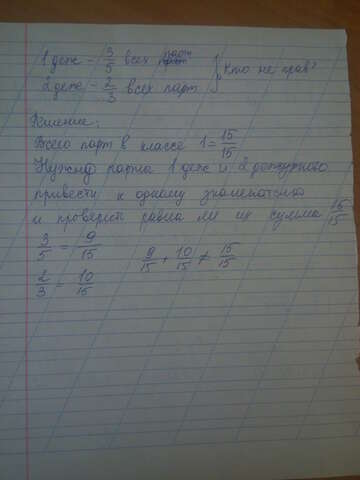 1 деж - 3/5 всех парт
2 деж - 2/3 всех парт } Кто не прав?
Решение:
Всего парт в классе 1 = 15/15
Нужно парты 1 деж и 2 дежурного
привести к одному знаменателю
и проверить равна ли их сумма 15/15
3/5 = 9/15
9/15 + 10/15 ≠ 15/15
2/3 = 10/15